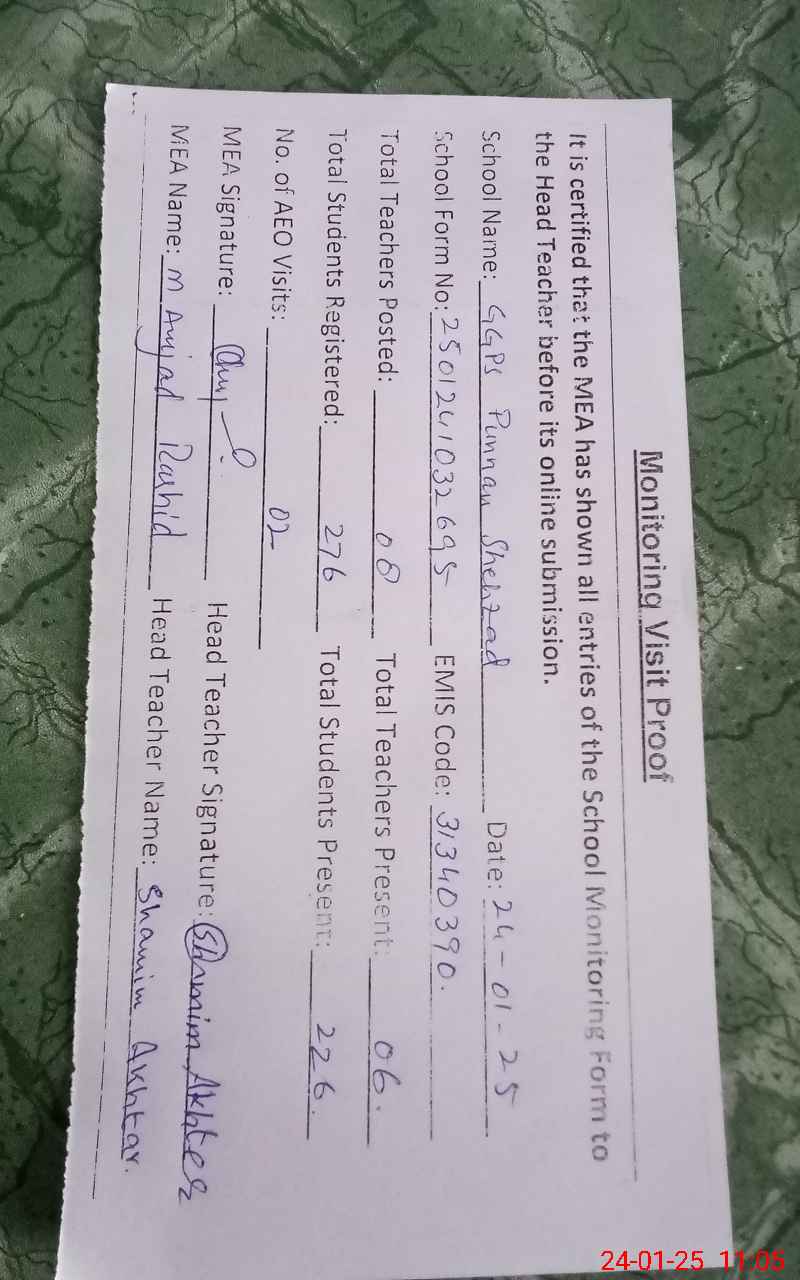 Monitoring Visit Proof
It is certified that the MEA has shown all entries of the School Monitoring Form to
the Head Teacher before its online submission.
School Name: GGPS Punnan Shehzad Date: 24-01-25
School Form No: 2501241032695 EMIS Code: 31340390.
Total Teachers Posted: 08 Total Teachers Present: 06.
Total Students Registered: 276 Total Students Present: 226.
No. of AEO Visits: 02
MEA Signature: Head Teacher Signature: Shamim Akhter
MEA Name: M Amjad Rashid Head Teacher Name: Shamim Akhtar.
24-01-25 11:05